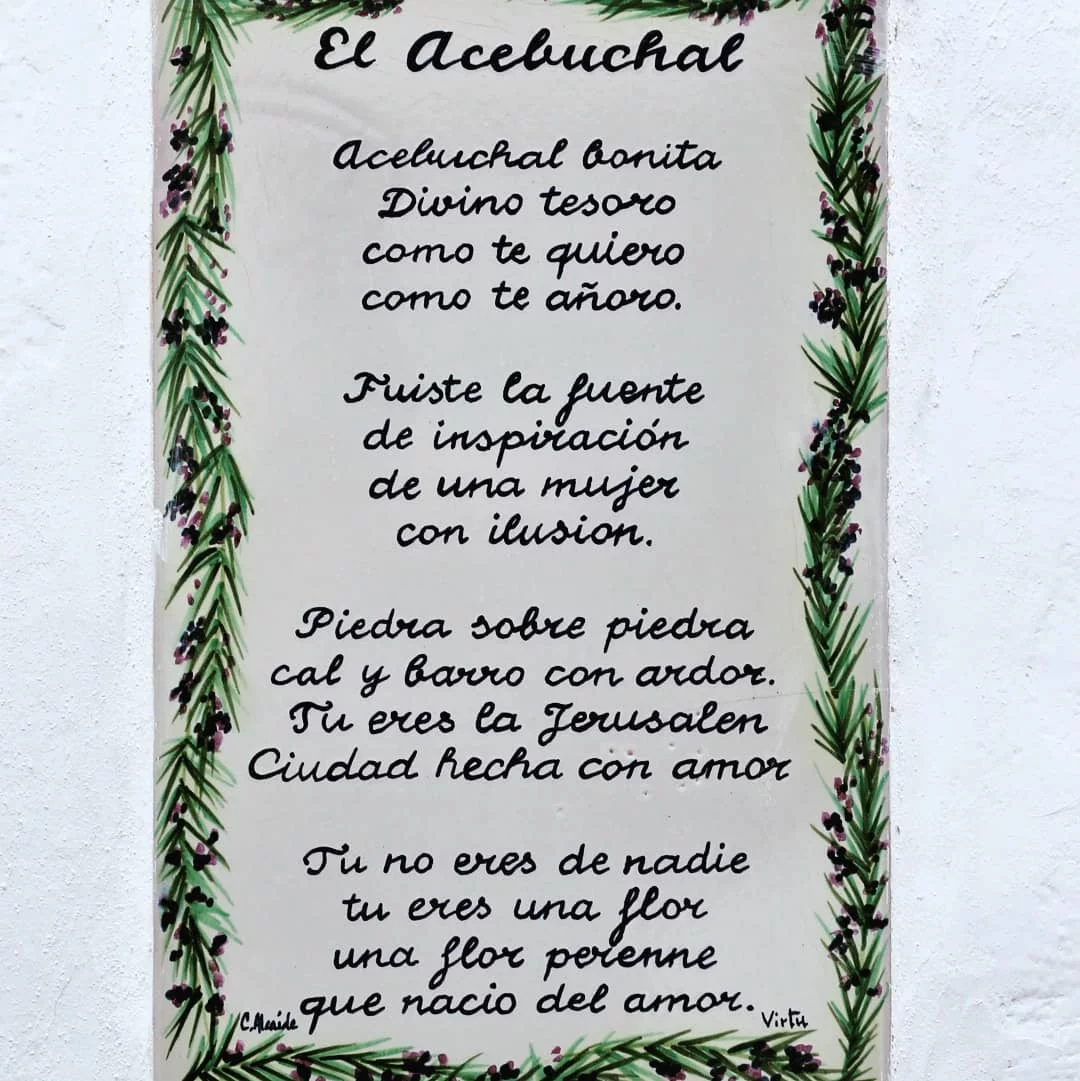 El Acebuchal
Acebuchal bonita
Divino tesoro
como te quiero
como te añoro.
Fuiste la fuente
de inspiración
de una mujer
con ilusion.
Piedra sobre piedra
cal y barro con ardor.
Tu eres la Jerusalen
Ciudad hecha con amor
Tu no eres de nadie
tu eres una flor
una flor perenne
que nacio del amor.
C. Alcaide
Virtu